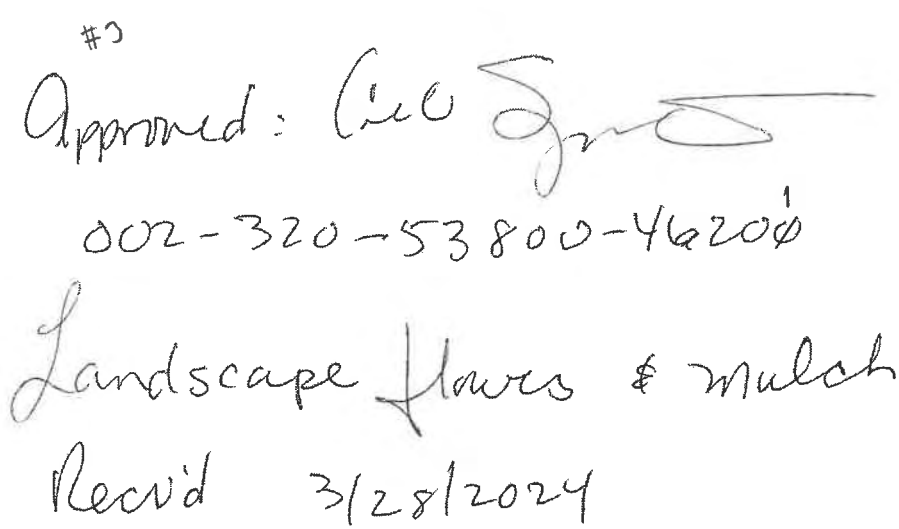 #3
Approved:
002-320-53800-46201
Landscape flowers & mulch
Recv'd 3/28/2024